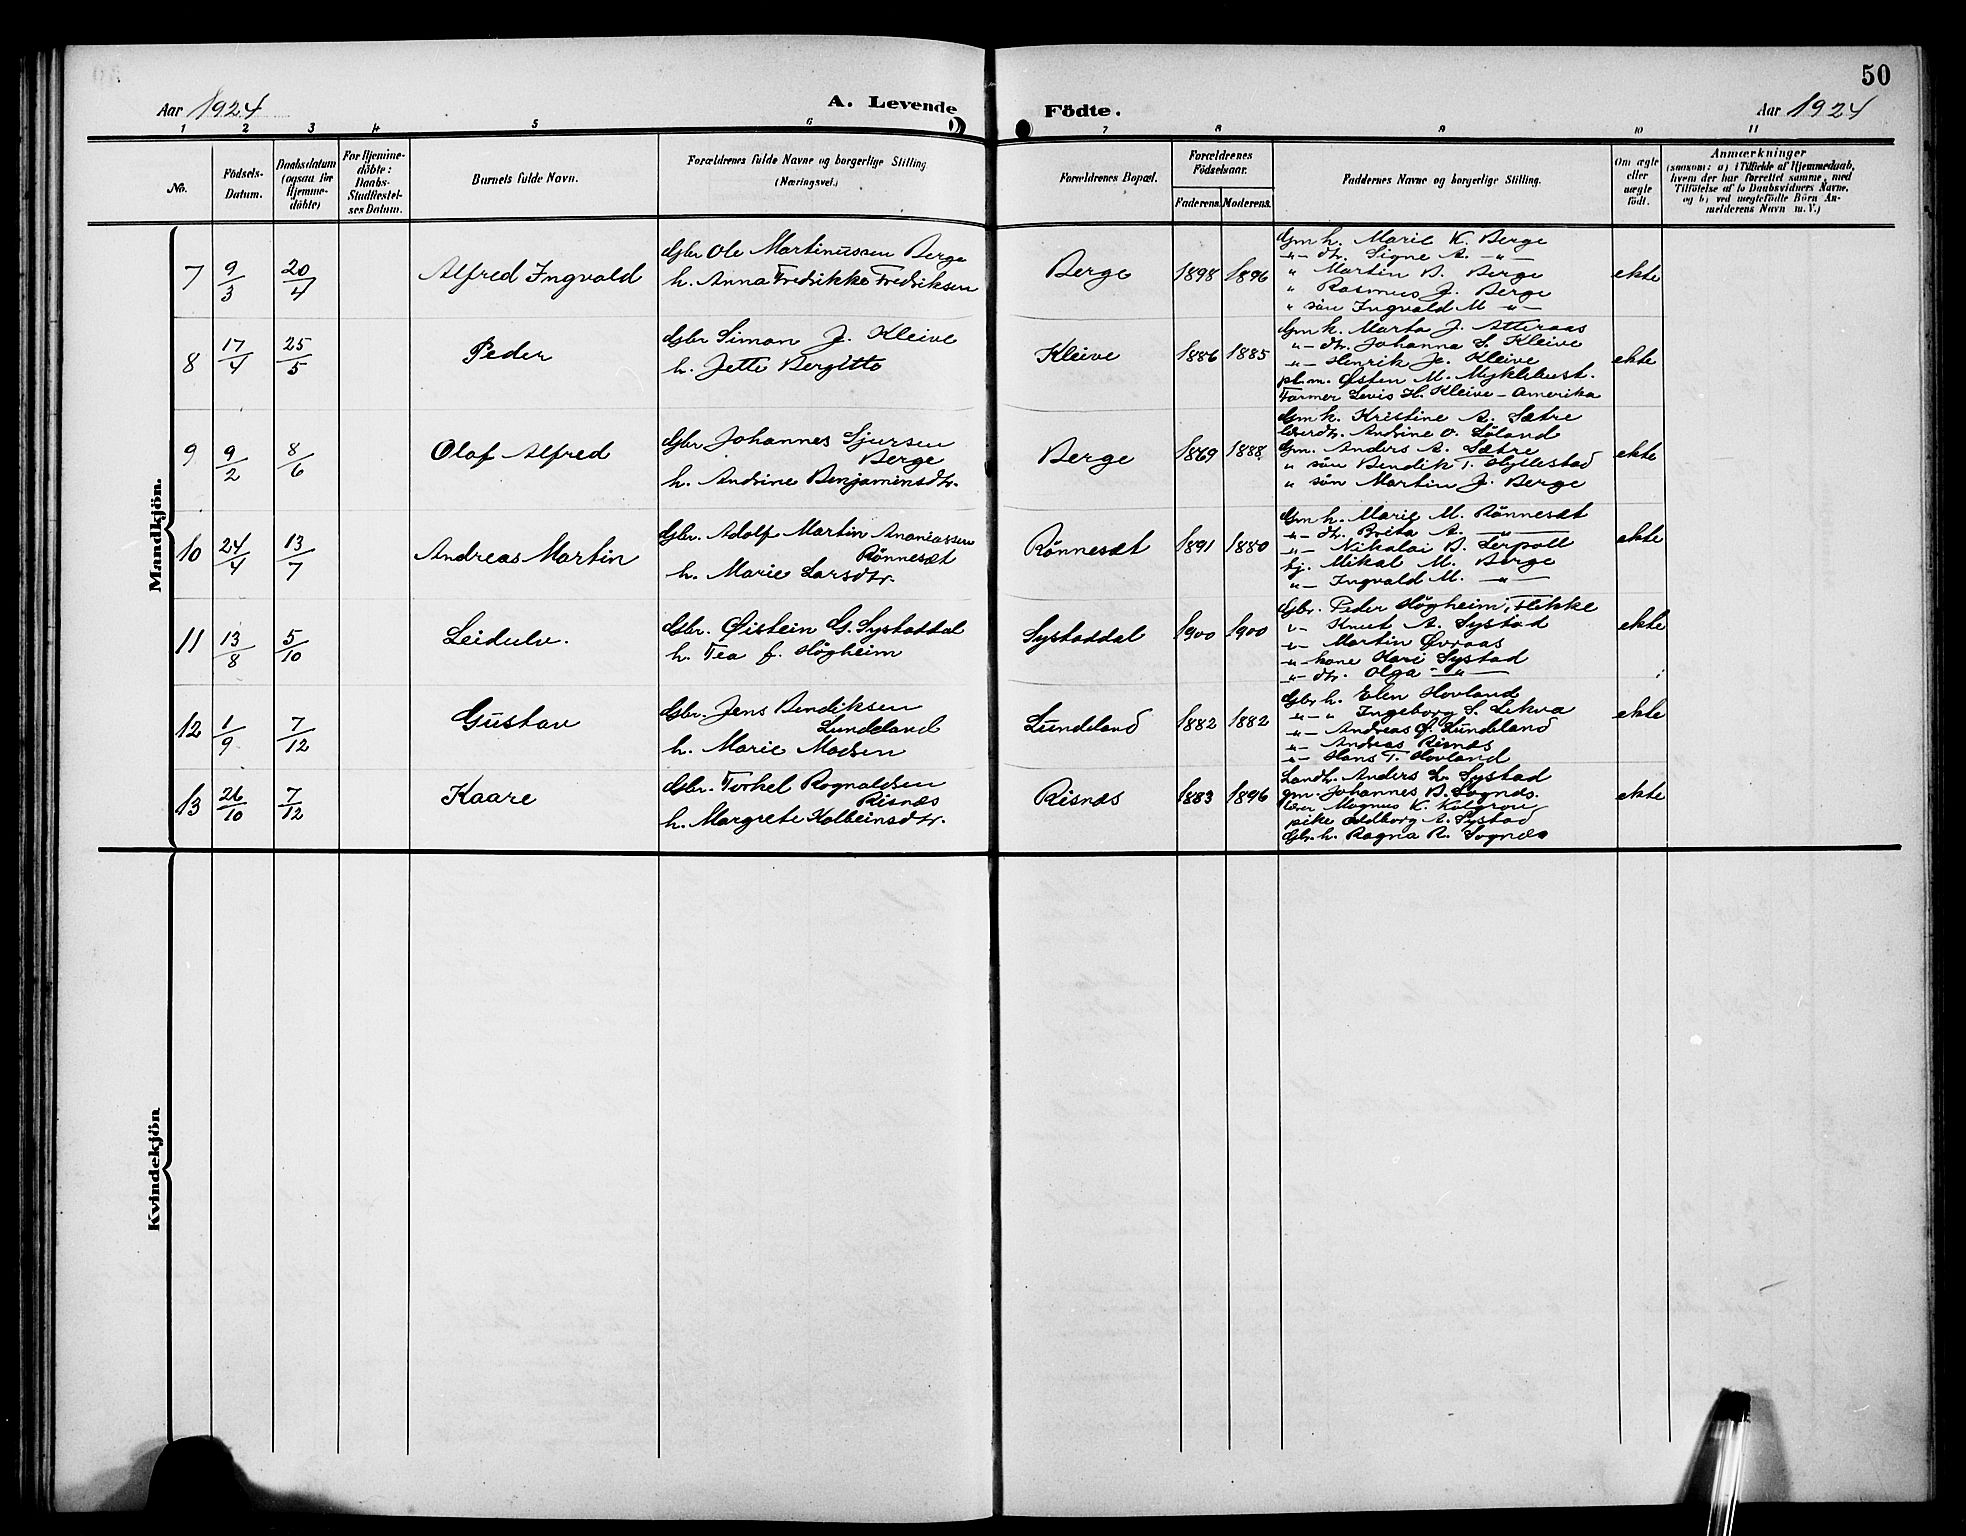 50
Aar 1924
A. Levende Födte.
Aar 1924
1 2 3 4 5 6 7 8 9 10 11
No.
Födsels-
Datum.
Daabsdatum
(ogsaa for
Hjemme-
döbte)
For Hjemme-
döbte:
Daabs-
Stadfæstel-
ses Datum.
Barnets fulde Navn.
Forældrenes fulde Navne og borgerlige Stilling
(Næringsvei.)
Forældrenes Bopæl.
Forældrenes
Födselsaar.
Faderens. Moderens.
Faddernes Navne og borgerlige Stilling.
Om ægte
eller
uægte
födt.
Anmærkninger
(saasom: a) i Tilfælde af Hjemmedaab,
hvem der har forrettet samme, med
Tilföielse af to Daabsvidners Navne,
og b) ved uægtefödte Börn An-
melderens Navn m. V.)
Mandkjön.
7 9/3 20/4 Alfred Ingvald
Gbr Ole Martinussen Berge
h. Anna Fredrikke Fredriksen
Berge 1898 1896
Gm h. Marie K. Berge
" - dtr. Signe A. - " -
" Martin B. Berge
" Rasmus J. Berge
" sön Ingvald M - " -
ekte
8 17/4 25/5 Peder
Gbr Simon J. Kleive
h. Jette Bergitte
Kleive 1886 1885
Gm k. Marta J. Atteraas
" - dtr. Johanna S. Kleive
" - Henrik J. Kleive
pl.m. Østen M. Myklebust.
Farmer Levis H. Kleive - Amerika
ekte
9 9/2 8/6 Olaf Alfred
Gbr Johannes Sjursen
Berge
h. Andrine Benjaminsdtr.
Berge 1869 1888
Gm k. Kristine A. Sætre
Andrine O. Söland
Gm. Anders A. Sætre
" sön Bendik T. Hyllestad
" sön Martin J. Berge
ekte
10 24/4 13/7 Andreas Martin
Gbr. Adolf Martin Ananiassen
Rönnesæt
h. Marie Larsdtr.
Rönnesæt 1891 1880
Gm h. Marie M. Rönnesæt
" - dtr. Brita A. - " -
" - Nikolai B. Lerpoll
tj. Mikal M. Berge
" - Ingvald M. - " -
ekte
11 13/8 5/10 Leidulv.
Gbr. Øistein G. Systaddal
h. Tea f. Högheim
Systaddal 1900 1900
Gbr. Peder Högheim, Flekke
" - Knut A. Systad
" - Martin Øvraas
" - kone Kari Systad
" - dtr. Olga - " -
ekte
12 1/9 7/12 Gustav
Gbr. Jens Bendiksen
Lundeland
h. Marie Madsen
Lundeland 1882 1882
Gbr h. Elen Hovland
" - " Ingeborg S. Lekva
" - Andreas Ø. Lundeland
" - Andreas Risnæs
" - Hans T. Hovland
ekte
13 26/10 7/12 Kaare
Gbr. Torkel Rognaldsen
Risnæs
h. Margrete Kolbeinsdtr.
Risnæs 1883 1896
Landh. Anders L. Systad
gm. Johannes B. Sognæs.
Magnus K. Kolgrov
pike Oldborg A. Systad
Gbr. h. Ragna R. Sognæs
ekte
Kvindekjön